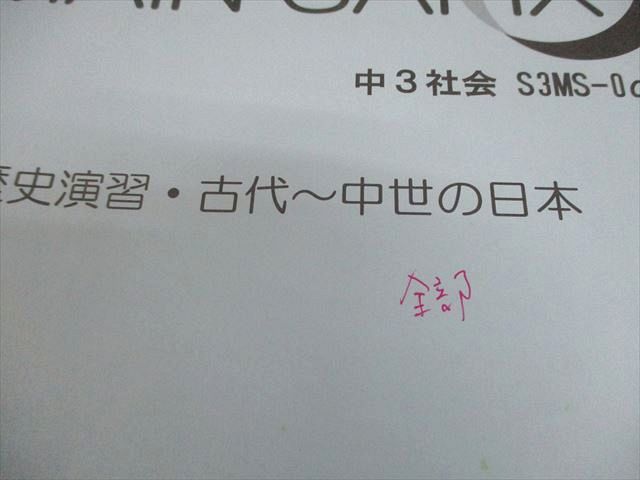 中３社会 S3MS-0
歴史演習・古代～中世の日本
全部